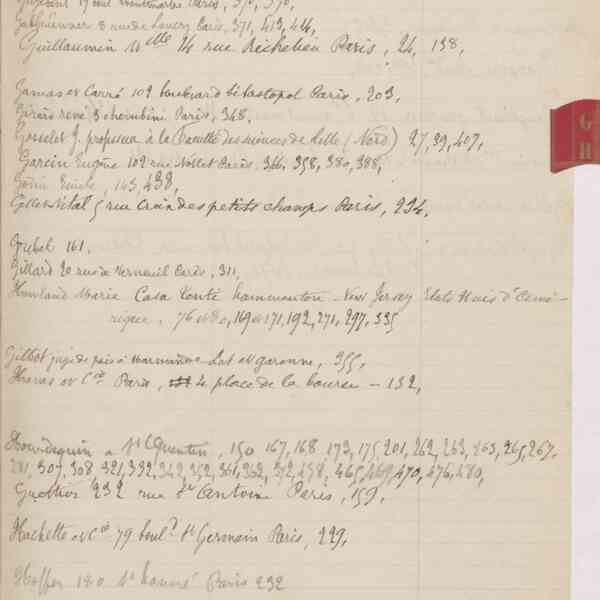 Guillaumin Mlle 14 rue Richelieu Paris, 24, 138,
Gamas et Carré 102 boulevard Sébastopol Paris, 203,
Girard rené 3 Cherubini Paris, 348,
Gosselet J. professeur à la Faculté des sciences de Lille (Nord) 27, 39, 407,
Garcin Eugène 102 rue Nollet Paris, 344, 358, 380, 388,
Emile, 143, 438,
5 rue Croix des petits champs Paris, 234,
161,
Gillard 20 rue de Verneuil Paris, 311,
Howland Marie Casa Tonti hammonton - New Jersey Etats Unis d'Amé-
rique, 76 et 80, 169 et 171, 192, 271, 297, 335
juge de paix à Marmande Lot et garonne, 355,
Havas et Cie Paris, 4 place de la bourse - 132,
à St Quentin, 150 167, 168 173, 175, 201, 262, 263, 265, 267,
281, 307, 308, 321, 332, 342, 352, 361, 362, 372, 458, 465, 469, 470, 476, 480,
232 rue St Antoine Paris, 159,
Hachette et Cie 79 boul.d St Germain Paris, 229,
180 St honoré Paris 232
G
H